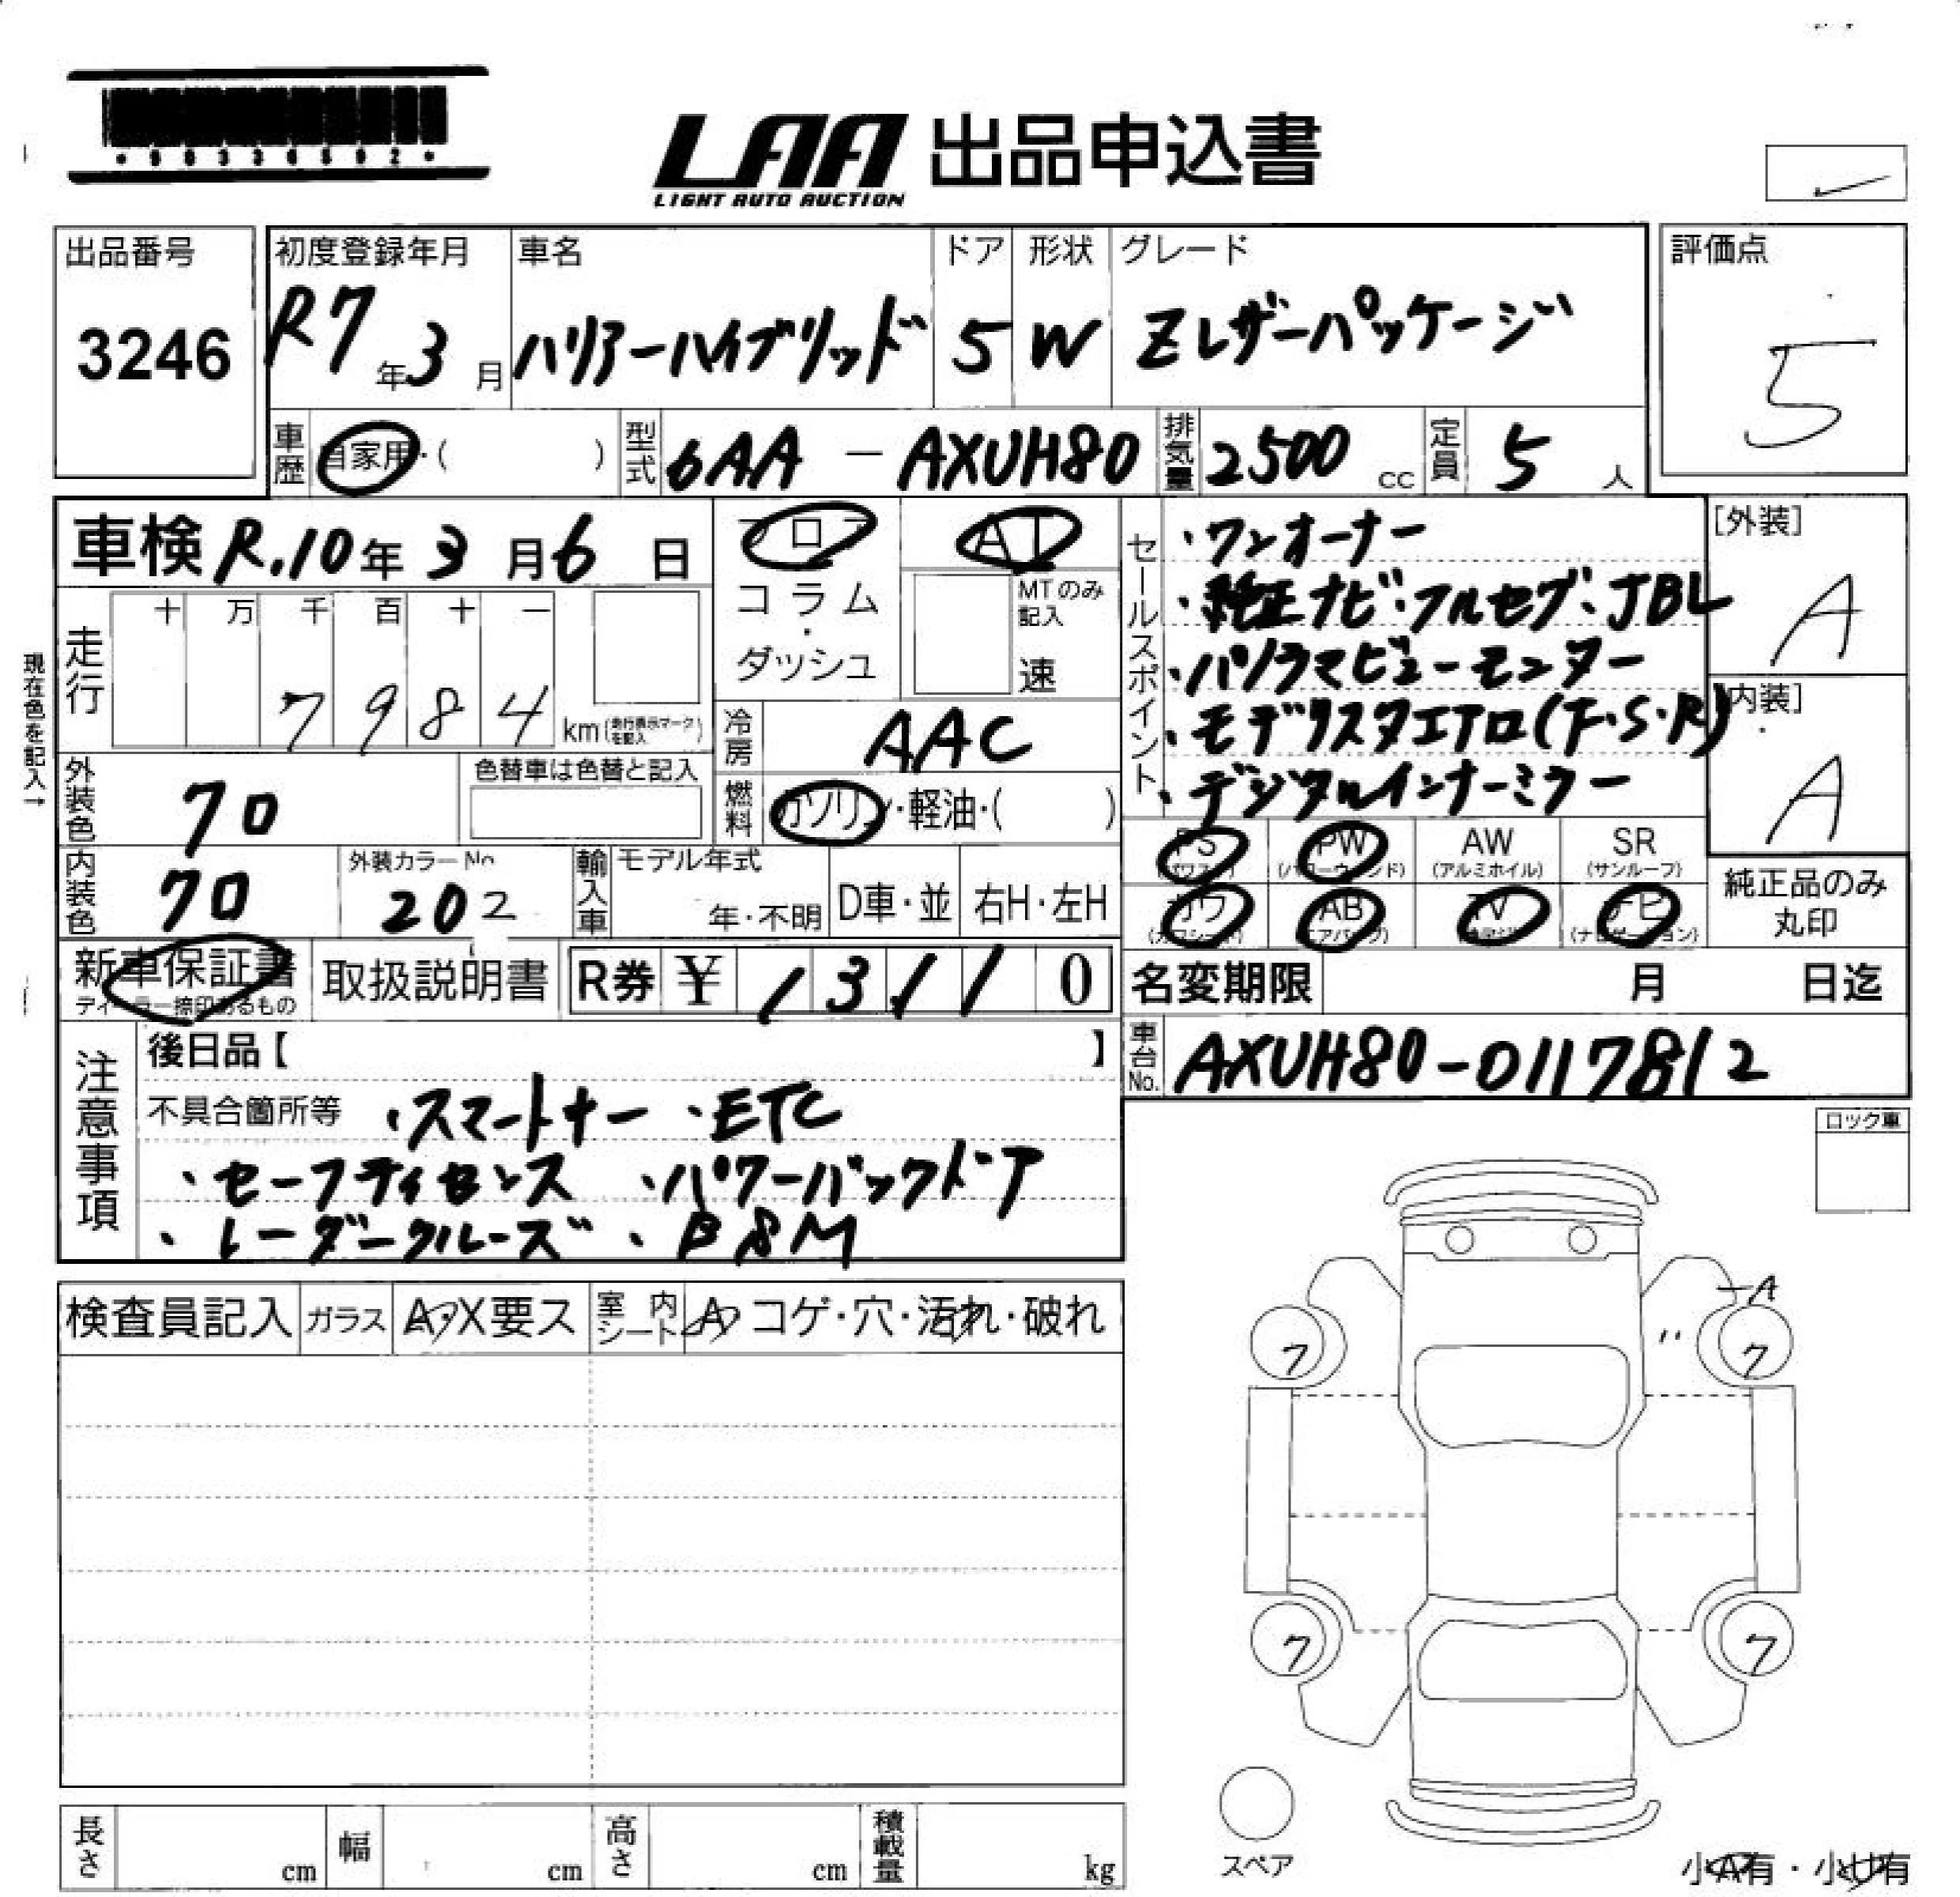 LAA 出品申込書
LIGHT AUTO AUCTION
出品番号
3246
初度登録年月
R7年3月
車名
ハリアーハイブリッド
ドア
5
形状
W
グレード
Zレザーパッケージ
評価点
5
車歴 自家用・( )
型式 6AA - AXUH80
排気量 2500 cc
定員 5 人
車検 R.10年3月6日
フロア
コラム
・
ダッシュ
AT
MTのみ
記入
速
現在色を記入→
走行
十 万 千 百 十 一
7 9 8 4 km (走行表示マークを記入)
冷房 AAC
燃料 ガソリン・軽油・( )
外装色 クロ
色替車は色替と記入
内装色 クロ
外装カラーNo
202
輸入車 モデル年式
年・不明
D車・並
右H・左H
セールスポイント
・ワンオーナー
・純正ナビ・フルセグ・JBL
・パノラマビューモニター
・モデリスタエアロ(F・S・R)
・デジタルインナーミラー
[外装]
A
[内装]
A
PS
PW
AW
(アルミホイル)
SR
(サンルーフ)
カワ
AB
TV
ナビ
(ナビゲーション)
純正品のみ
丸印
新車保証書
取扱説明書
R券 ¥ 1 3 1 1 0
名変期限 月 日迄
車台No. AXUH80-0117812
注意事項
後日品【 】
不具合箇所等 ・スマートキー ・ETC
・セーフティセンス ・パワーバックドア
・レーダークルーズ ・BSM
ロック車
検査員記入
ガラス
A・X要ス
室内シート
コゲ・穴・汚れ・破れ
A
7
7
7
7
スペア
長さ cm
幅 cm
高さ cm
積載量 kg
小A有・小U有